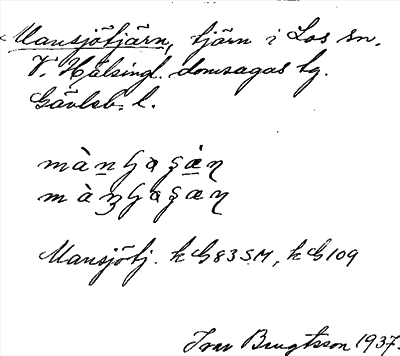 Mansjötjärn, tjärn i Los sn.
V. Hälsingl. domsagas tg.
Gävleb. l.
Mansjötj. k G83 S.M, k G109
Ivar Bengtsson 1937.